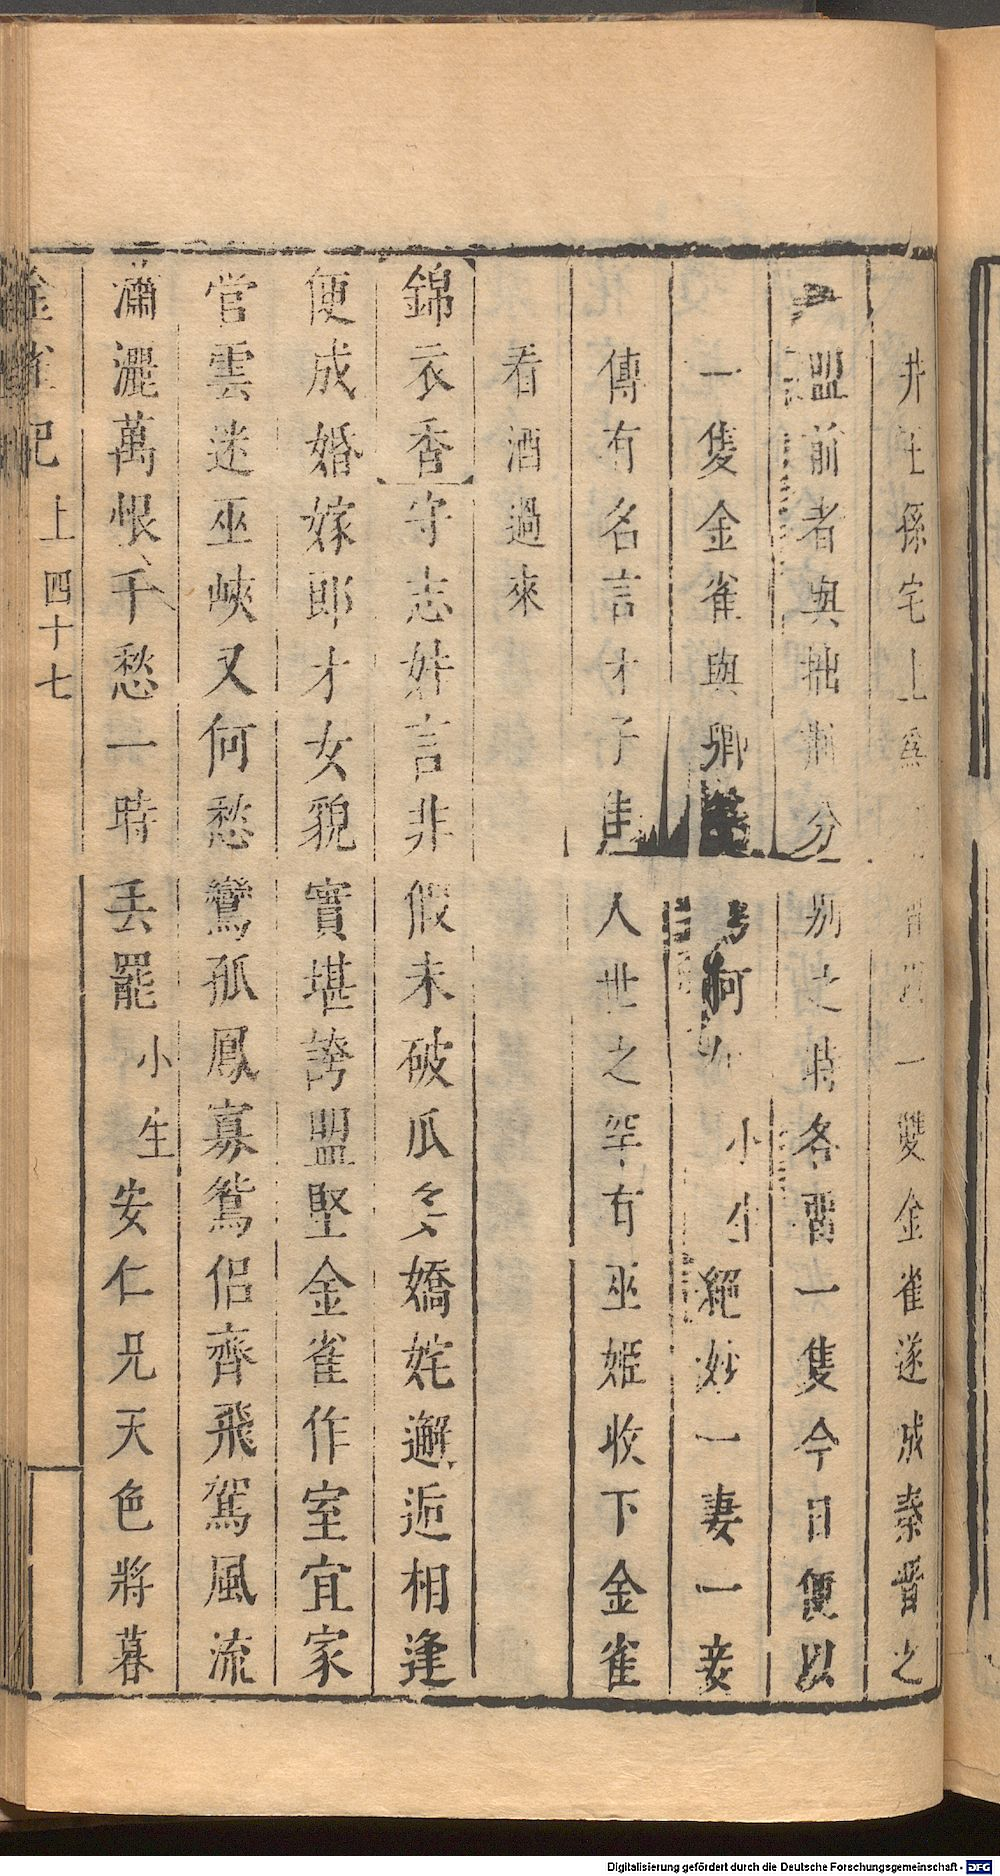 井王孫宅上爲一雙金雀遂成秦晉之
盟前者與拙荆分別之時各畱一隻今日便以
一隻金雀與卿爲何如小生絕妙一妻一妾
傳有名言才子佳人世之罕有巫姬收下金雀
看酒過來
錦衣香守志姸言非假未破瓜多嬌姹邂逅相逢
便成婚嫁郎才女貌實堪誇盟堅金雀作室宜家
嘗雲迷巫峽又何愁鸞孤鳳寡鴛侶齊飛駕風流
瀟灑萬恨千愁一時丟罷小生安仁兄天色將暮
金雀記 上 四十七
Digitalisierung gefördert durch die Deutsche Forschungsgemeinschaft - DFG